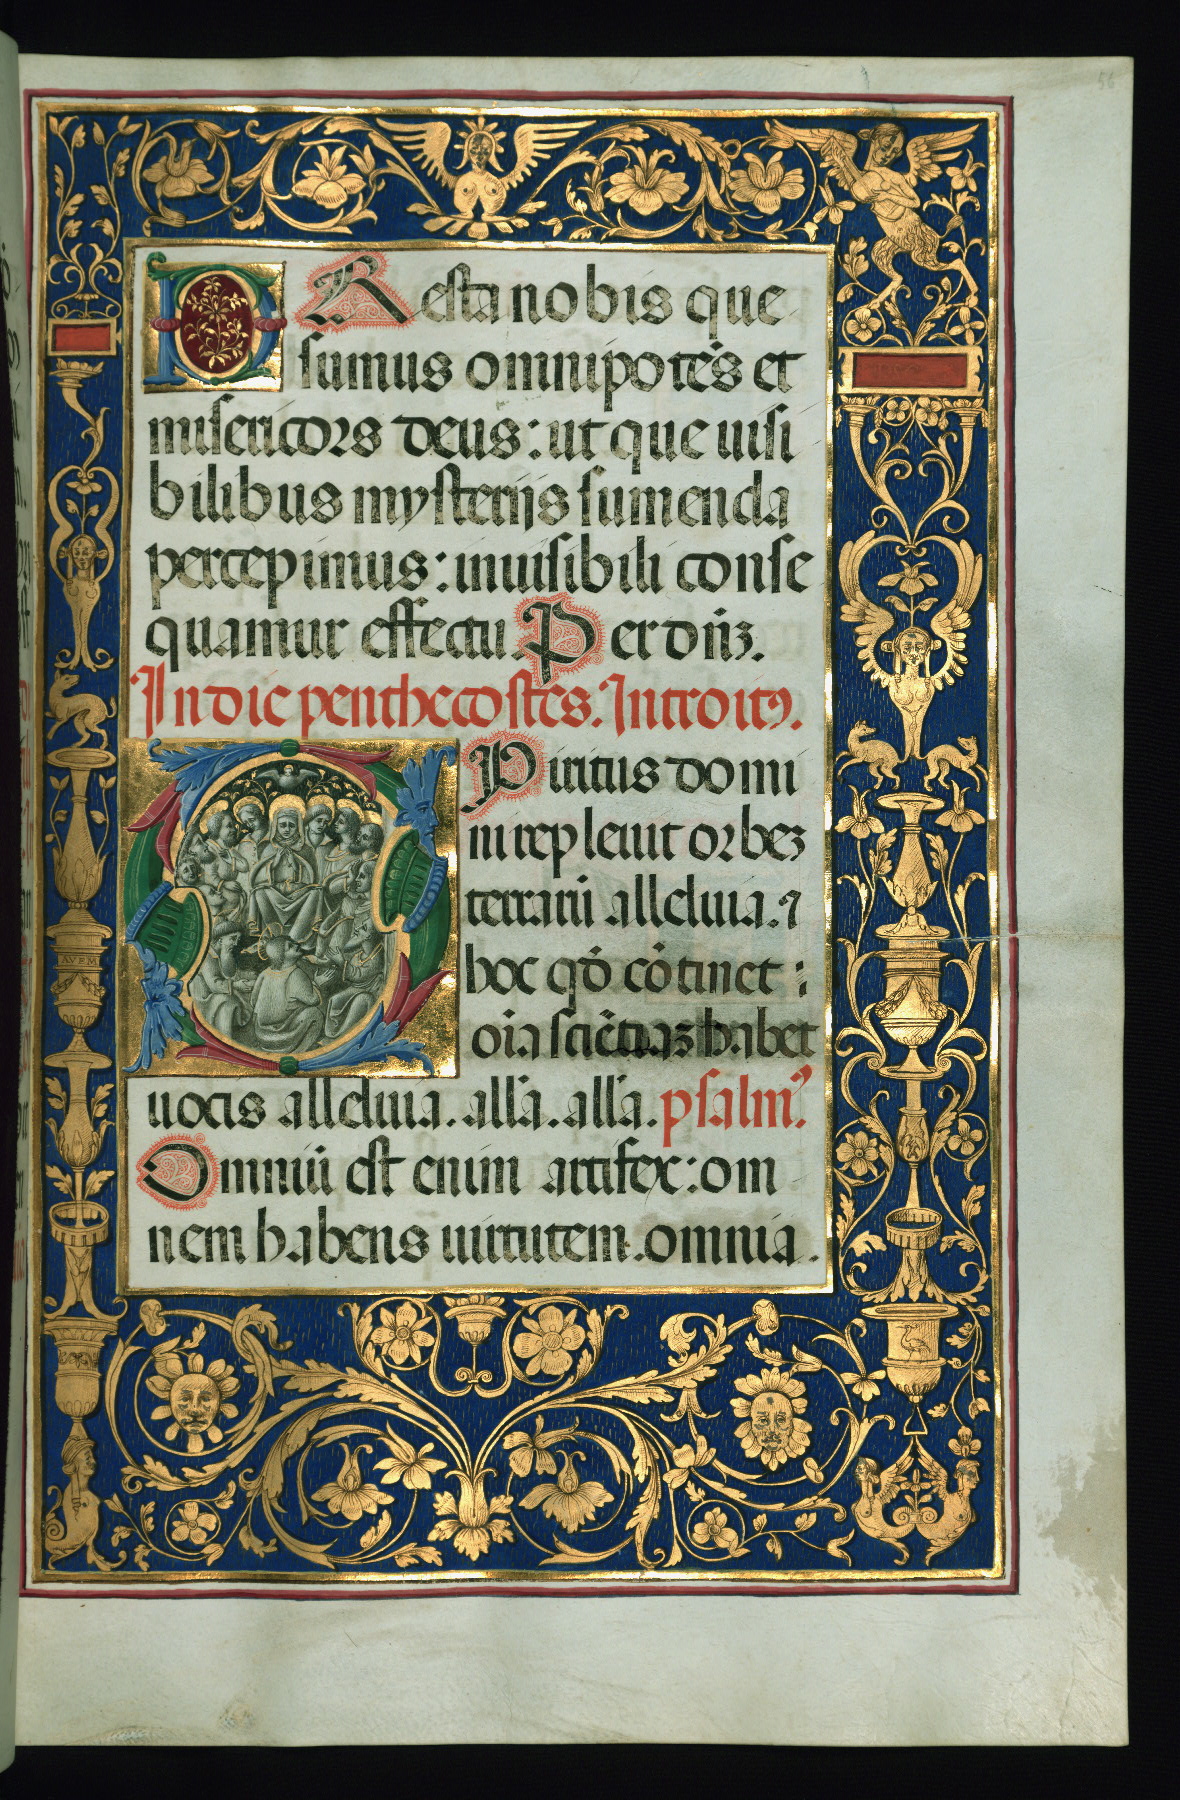 PResta nobis que
sumus omnipotēs et
misericors deus: ut que uisi
bilibus mysterijs sumenda
percepimus: inuisibili conse
quamur effectu. Per dn̄ꝫ.
In die penthecostes. Introitꝰ.
SPiritus domi
ni repleuit orbeꝫ
terrarū alleluia. ⁊
hoc qđ cōtinet
oīa sciētiaꝫ habet
uocis alleluia. allā. allā. psalmꝰ.
Omniū est enim artifex: om
nem habens uirtutem. omnia.
AVEM
56